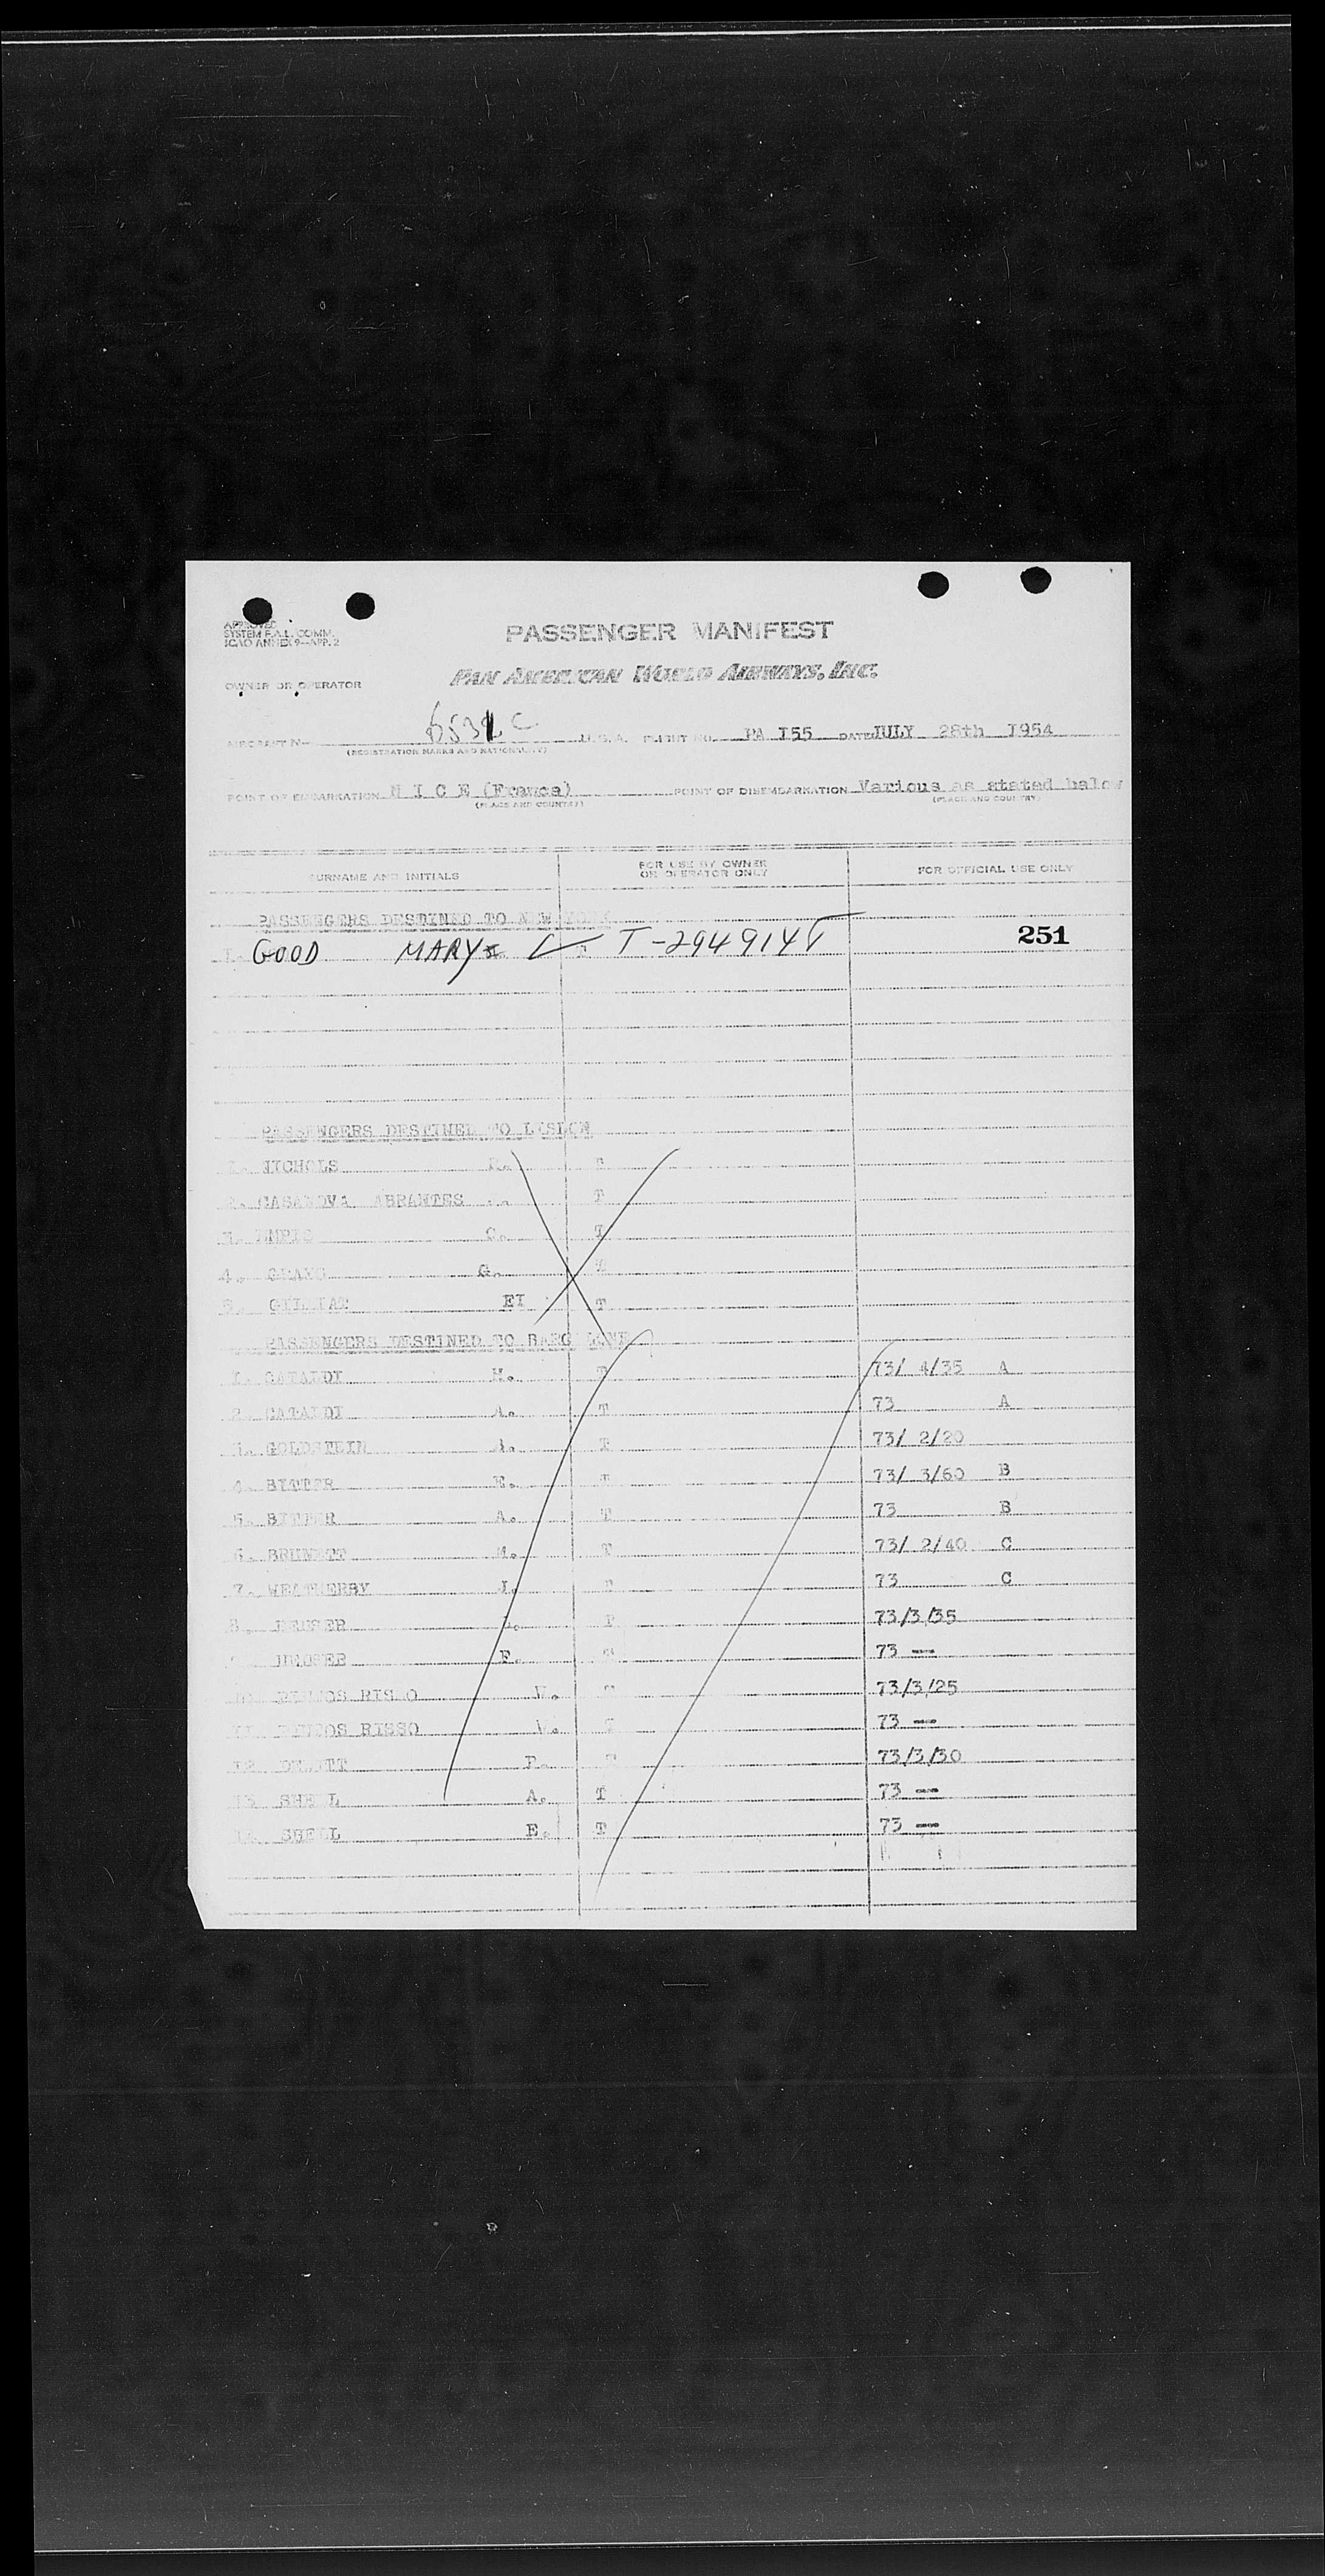 APPROVED
SYSTEM F.A.L. COMM.
ICAO ANNEX 9-APP. 2
PASSENGER MANIFEST
OWNER OR OPERATOR PAN AMERICAN WORLD AIRWAYS, INC.
AIRCRAFT No. C U.S.A. FLIGHT NO. PA I55 DATE JULY 28th I954
(REGISTRATION MARKS AND NATIONALITY)
POINT OF EMBARKATION N I C E (France) POINT OF DISEMBARKATION Various as stated below
(PLACE AND COUNTRY) (PLACE AND COUNTRY)
SURNAME AND INITIALS FOR USE BY OWNER OR OPERATOR ONLY FOR OFFICIAL USE ONLY
PASSENGERS DESTINED TO NEW YORK
251
GOOD MARY T-2949145
PASSENGERS DESTINED TO LISBON
1. NICHOLS T
2. CASANOVA ABRANTES T
3. C. T
4. G. T
5. EI T
PASSENGERS DESTINED TO BARCELONE
1. CATALDI M. T 73/ 4/35 A
2. CATALDI A. T 73 A
3. GOLDSTEIN A. T 73/ 2/20
4. BITTER E. T 73/ 3/60 B
5. BITTER A. T 73 B
6. M. T 73/ 2/40 C
7. WEATHERBY J. T 73 C
8. T 73/3/35
F. T 73 --
10. RISSO V. T 73/3/25
11. RISSO V. T 73 --
12. T 73/3/30
13 SHELL A. T 73 --
14 SHELL E. T 73 --